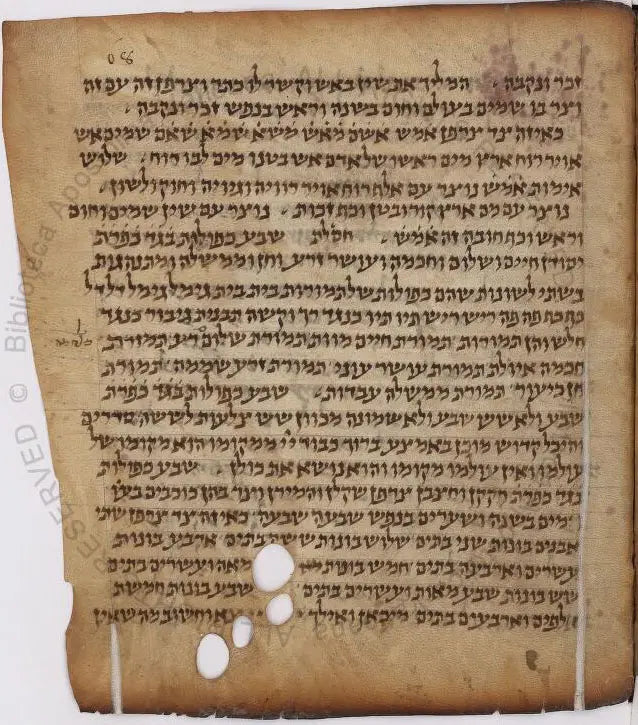 80
זכר ונקבה המליך את שין באש וקשר לו כתר וצרפן זה עם זה
וצר בו שמים בעולם וחום בשנה וראש בנפש זכר ונקבה
כאיזה צד צרפן אמש אשם מאש משא שמא שאם שמים אש
אויר רוח ארץ מים ראשו של אדם אש בטנו מים לבו רוח שלוש
אימות אמש נוצר עם אלף רוח אויר רוויה וגויה וחוק ולשון
נוצר עם מם ארץ קור ובטן וכף זכות נוצר עם שין שמים וחום
וראש וכף חובה זה אמש חסלת שבע כפולות בגד כפרת
יסודן חיים ושלום וחכמה ועושר זרע וחן וממשלה ומתנהגות
בשתי לשונות שהם כפולות של תמורות בית בית גימל גימל דל דל
כף כף פה פה ריש ריש תיו תיו כנגד רך וקשה תבנית גיבור כנגד
חלש והן תמורות תמורת חיים מוות תמורת שלום רע תמורת
חכמה אולת תמורת עושר עוני תמורת זרע שממה תמורת
חן כיעור תמורת ממשלה עבדות שבע כפולות בגד כפרת
שבע ולא שש שבע ולא שמונה מכוון שש צלעות לששה סדרים
והיכל קדוש מוכן באמצע ברוך כבוד יי ממקומו הוא מקומו של
עולמו ואין עולמו מקומו והוא נושא את כולן שבע כפולות
בגד כפרת חקקן חצבן צרפן שקלן והמירן וצר בהן כוכבים בעו
וימים בשנה ושערים בנפש שבעה שבעה כאיזה צד צרפן שתי
אבנים בונות שני בתים שלוש בונות ששה בתים ארבע בונות
עשרים וארבעה בתים חמש בונות מאה ועשרים בתים
שש בונות שבע מאות ועשרים בתים שבע בונות חמשת
אלפים וארבעים בתים מיכאן ואילך צא וחשוב מה שאין